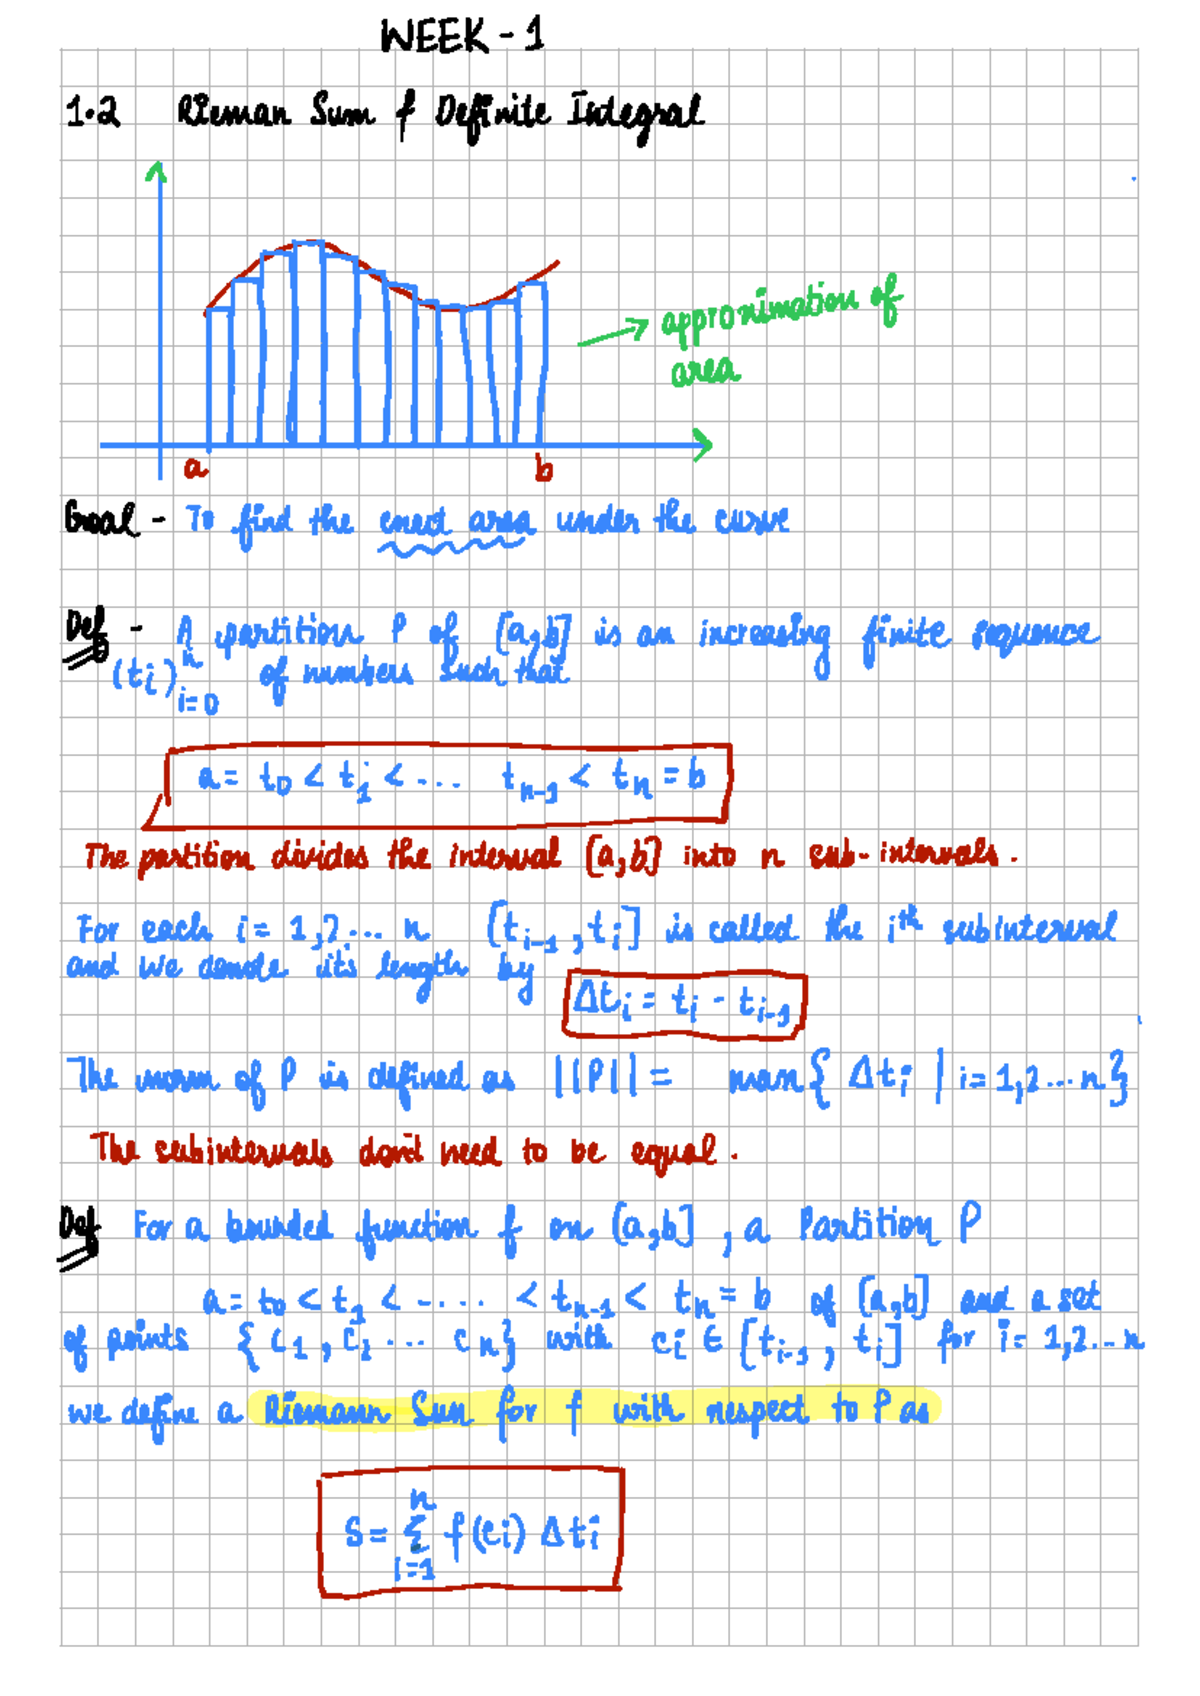 WEEK - 1
1.2 Rieman Sum & Definite Integral
approximation of
area
a b
Goal - To find the exact area under the curve
Def - A partition P of [a,b] is an increasing finite sequence
(tᵢ)ⁿᵢ₌₀ of numbers such that
a = t₀ < t₁ < ... tₙ₋₁ < tₙ = b
The partition divides the interval [a,b] into n sub-intervals.
For each i = 1,2... n [tᵢ₋₁, tᵢ] is called the iᵗʰ subinterval
and we denote its length by
Δtᵢ = tᵢ - tᵢ₋₁
The norm of P is defined as ||P|| = max{ Δtᵢ | i = 1,2...n}
The subintervals don't need to be equal.
Def For a bounded function f on [a,b], a Partition P
a = t₀ < t₁ < ..... < tₙ₋₁ < tₙ = b of [a,b] and a set
of points {c₁, c₂ ... cₙ} with cᵢ ∈ [tᵢ₋₁, tᵢ] for i = 1,2...n
we define a Riemann Sum for f with respect to P as
S = Σⁿᵢ₌₁ f(cᵢ) Δtᵢ